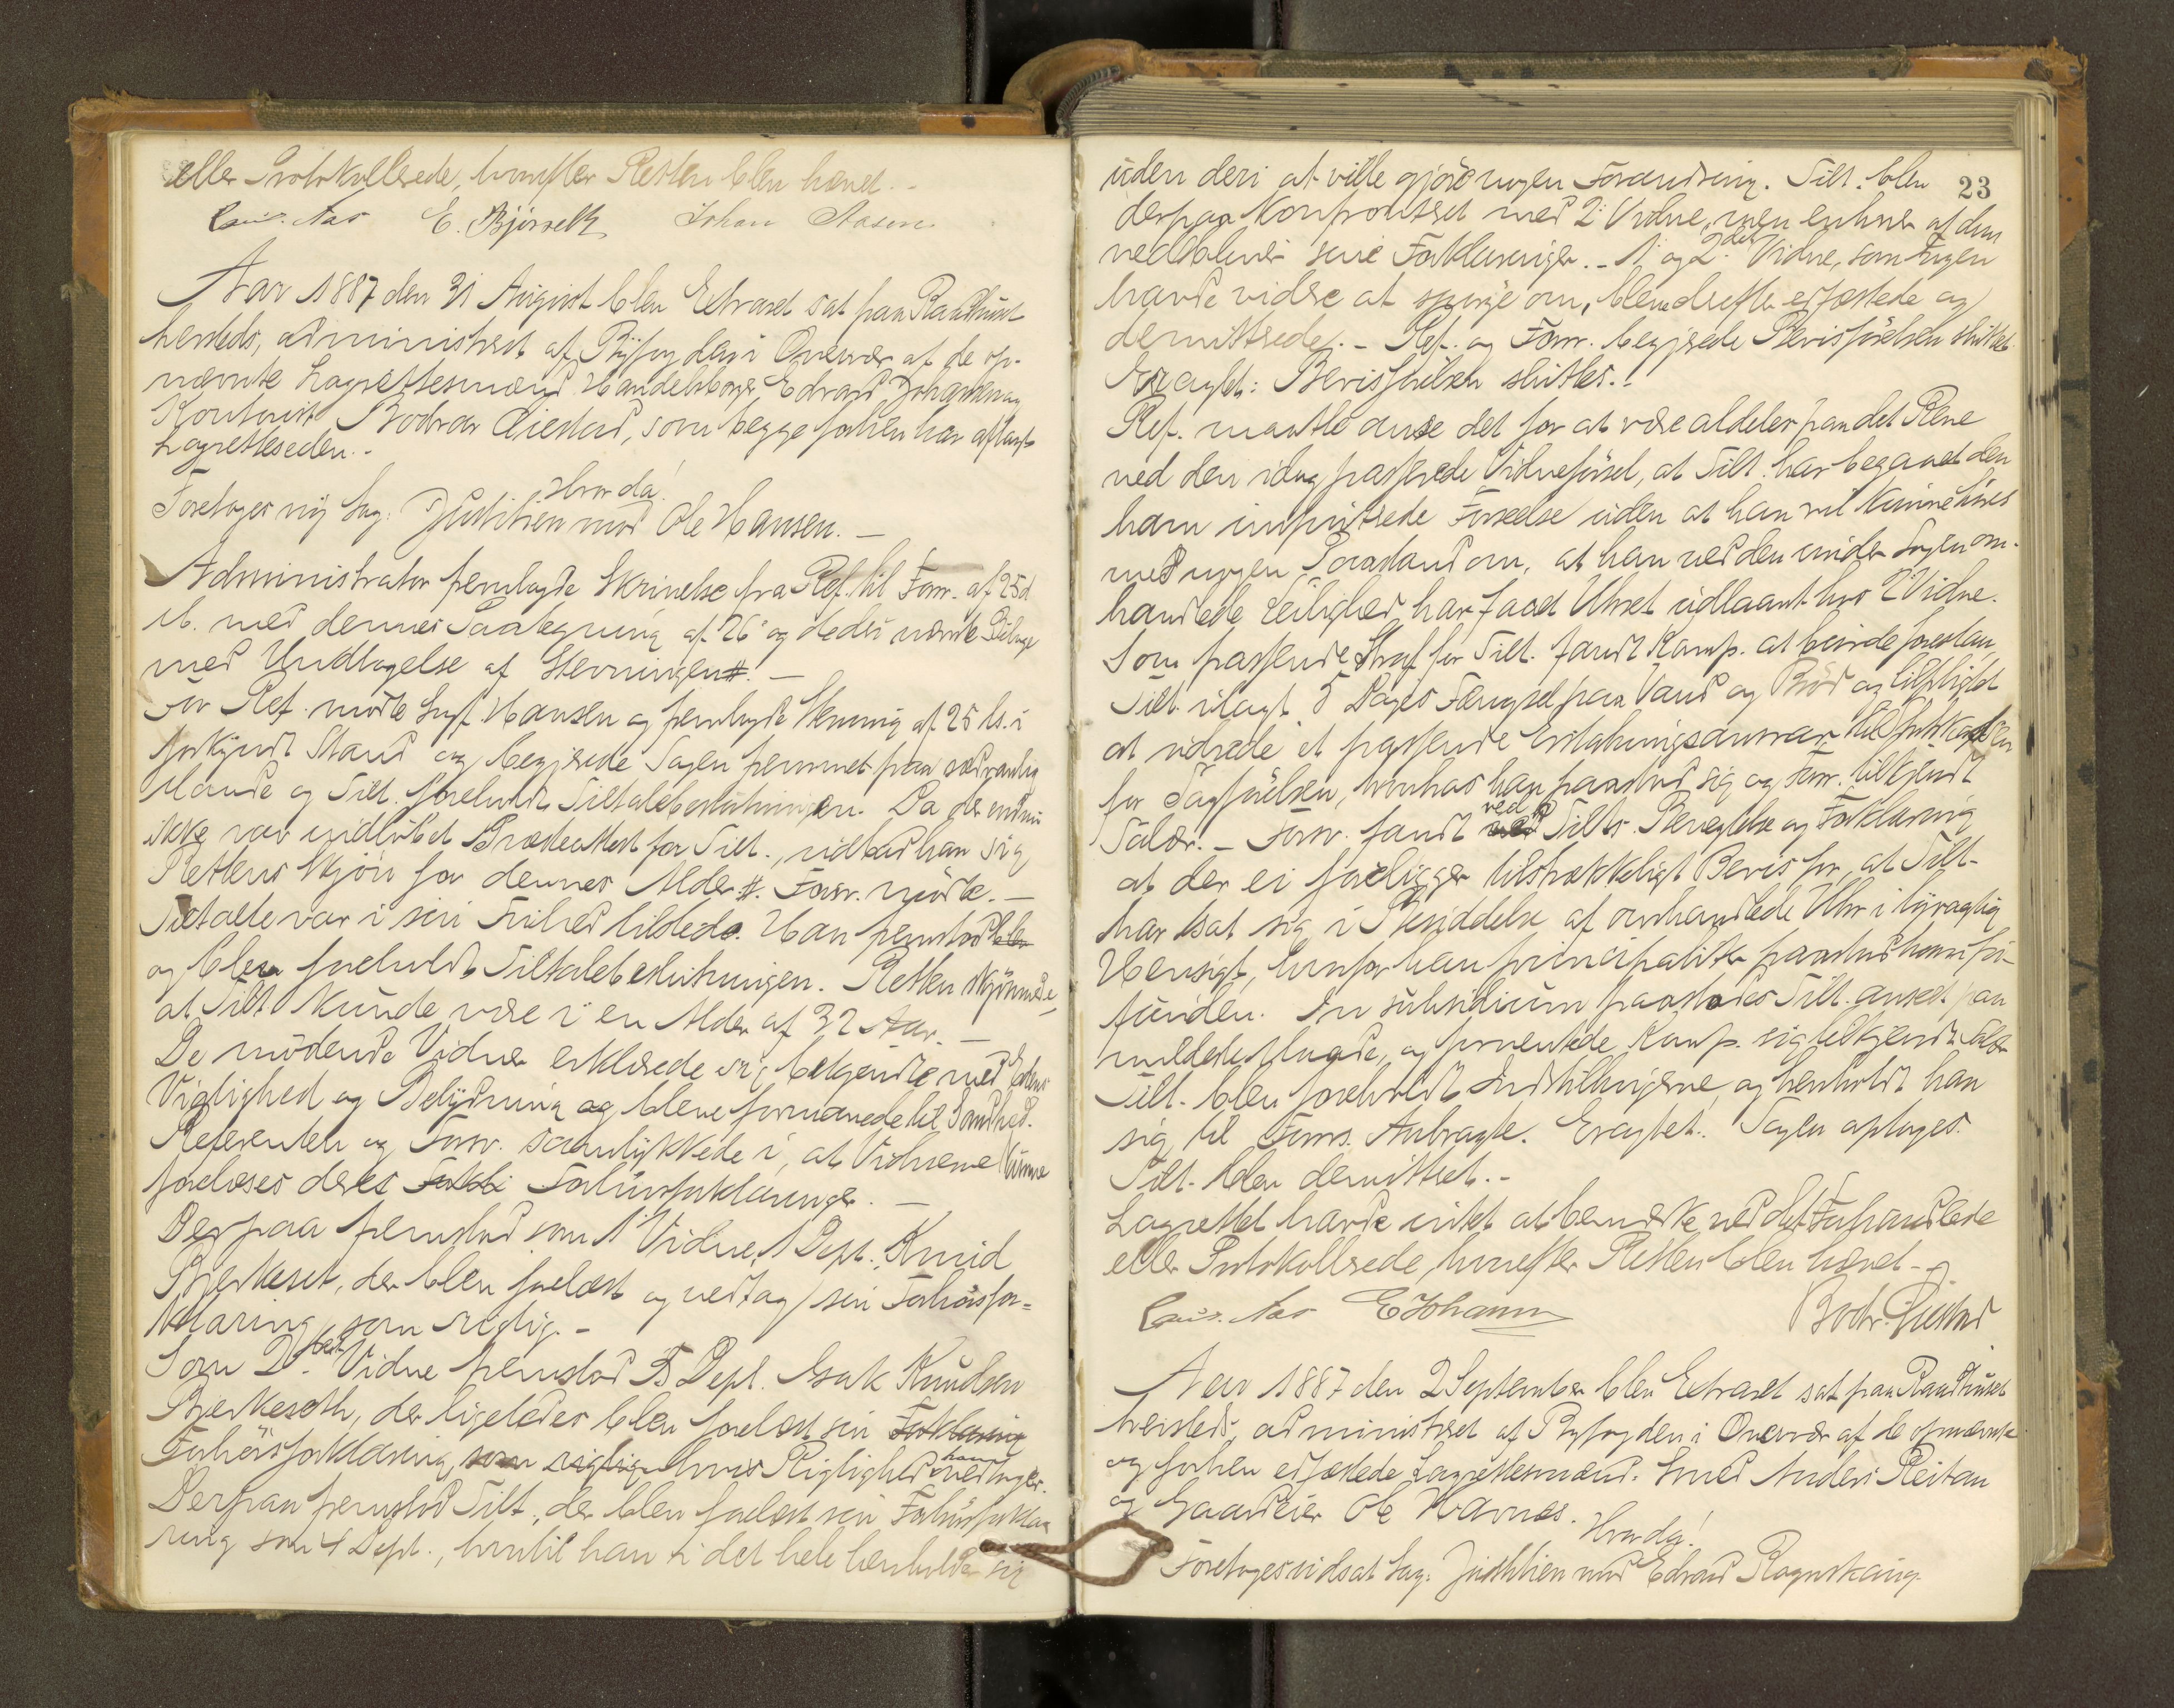 eller Protokollerede, hvorefter Retten blev hævet. -
Aas E. Bjørseth Johan Aasen
Aar 1887 den 31 August blev Extraret sat paa Raadhuset
hersteds, administreret af Byfogden i Overvær af de op-
nævnte Lagrettesmænd Handelsborger Edvard Johansen og
Kontorist Giestad, som begge forhen har aflagt
Lagretteseden. -
Hvor da!
Foretages ny Sag: Justitien mod Ole Hansen. -
Administrator fremlagde Skrivelse fra Ref. til Forsv. af 25 d
M. med dennes Paategning af 26' og dertil nævnte Bilage
med Undtagelse af Stevningen #. -
For Ref. mødte Sagf. Hansen og fremlagde Stevning af 25 ds. i
forkyndt Stand og begjerede Sagen fremmet paa sædvanlig
Maade og Tilt. foreholdt Tiltalebeslutningen. Da der endnu
ikke var indløbet Præsteattest for Tilt., udbad han sig
Rettens Skjøn for dennes Alder #. Forsv. mødte. -
Tiltalte var i sin Frihed tilstede. Han fremstod blev
og blev foreholdt Tiltalebeslutningen. Retten skjønnede,
at Tilt. kunde være i en Alder af 32 Aar. -
De mødende Vidner erklærede sig bekjendte med Edens
Vigtighed og Betydning og bleve formanede til Sandhed.
Referenten og Forsv. samtykkede i, at Vidnerne kunne
forelæses deres Forkl Forhørsforklaringer. -
Derpaa fremstod som 1' Vidne, 1 Dept. Knud
Bjerkeset, der blev forelæst og vedtog sin Forhørsfor=
klaring som rigtig. -
Som 2det Vidne fremstod 5 Dept. Isak Knudsen
Bjerkeseth, der ligeledes blev forelæst sin Forklaring
Forhørsforklaring, som rigtig hvis Rigtighed han vedtoges.
Derpaa fremstod Tilt., der blev forelæst sin Forhørsforkla
ring som 4 Dept., hvortil han i det hele henholder sig
23
uden deri at ville gjøre nogen Forandring. Tilt. blev
derpaa konfronteret med 2' Vidne, men enhver af dem
vedblev sine Forklaringer. - 1' og 2det Vidne, som Ingen
havde videre at spørge om, bleve derefter edfæstede og
demitterede. - Ref. og Forsv. begjerede Bevisførelsen sluttet.
Eragtet: Bevisførelsen sluttes. -
Ref. maatte anse det for at være aldeles paa det Rene
ved den idag passerede Vidneførsel, at Tilt. har begaaet den
ham imputerede Forseelse uden at han vil kunne høres
med nogen Paastand om, at han ved den under Sagen om-
handlede Leilighed har faaet Uhret udlaant hos 2' Vidne.
Som passende Straf for Tilt. fandt Komp. at burde foreslaa,
Tilt. ilagt 5 Dages Fængsel paa Vand og Brød og tilpligtet
at udrede et passende Erstatningsansvar til
for Sagførelsen, hvorhos han paastod sig og Forsv. tilkjendt
Salær. - Forsv. fandt med ved Tilts. Benegtelse og Forklaring
at der ei foreligger tilstrækkeligt Bevis for, at Tilt.
har sat sig i Besiddelse af omhandlede Uhr i tyvagtig
Hensigt, hvorfor han principaliter paastod ham fri-
funden. In subsidium paastodes Tilt. anseet paa
mildeste Maade, og forventede Komp. sig tilkjendt Salær
Tilt. blev foreholdt Indstillingerne, og henholdt han
sig til Forsvs. Anbragte. Eragtet: Sagen optages.
Tilt. blev demitteret. -
Lagrettet havde intet at bemerke ved det Forhandlede
eller Protokollerede, hvorefter Retten blev hævet -
Aas E Johansen Giestad
Aar 1887 den 2 September blev Extraret sat paa Raadhuset
hersteds, administreret af Byfogden i Overvær af de opnævnte
og forhen edfæstede Lagrettesmænd. Smed Anders Reitan
og Gaardeier Ole Havnes.
Hvor da!
Foretages udsat Sag: Justitien mod Edvard